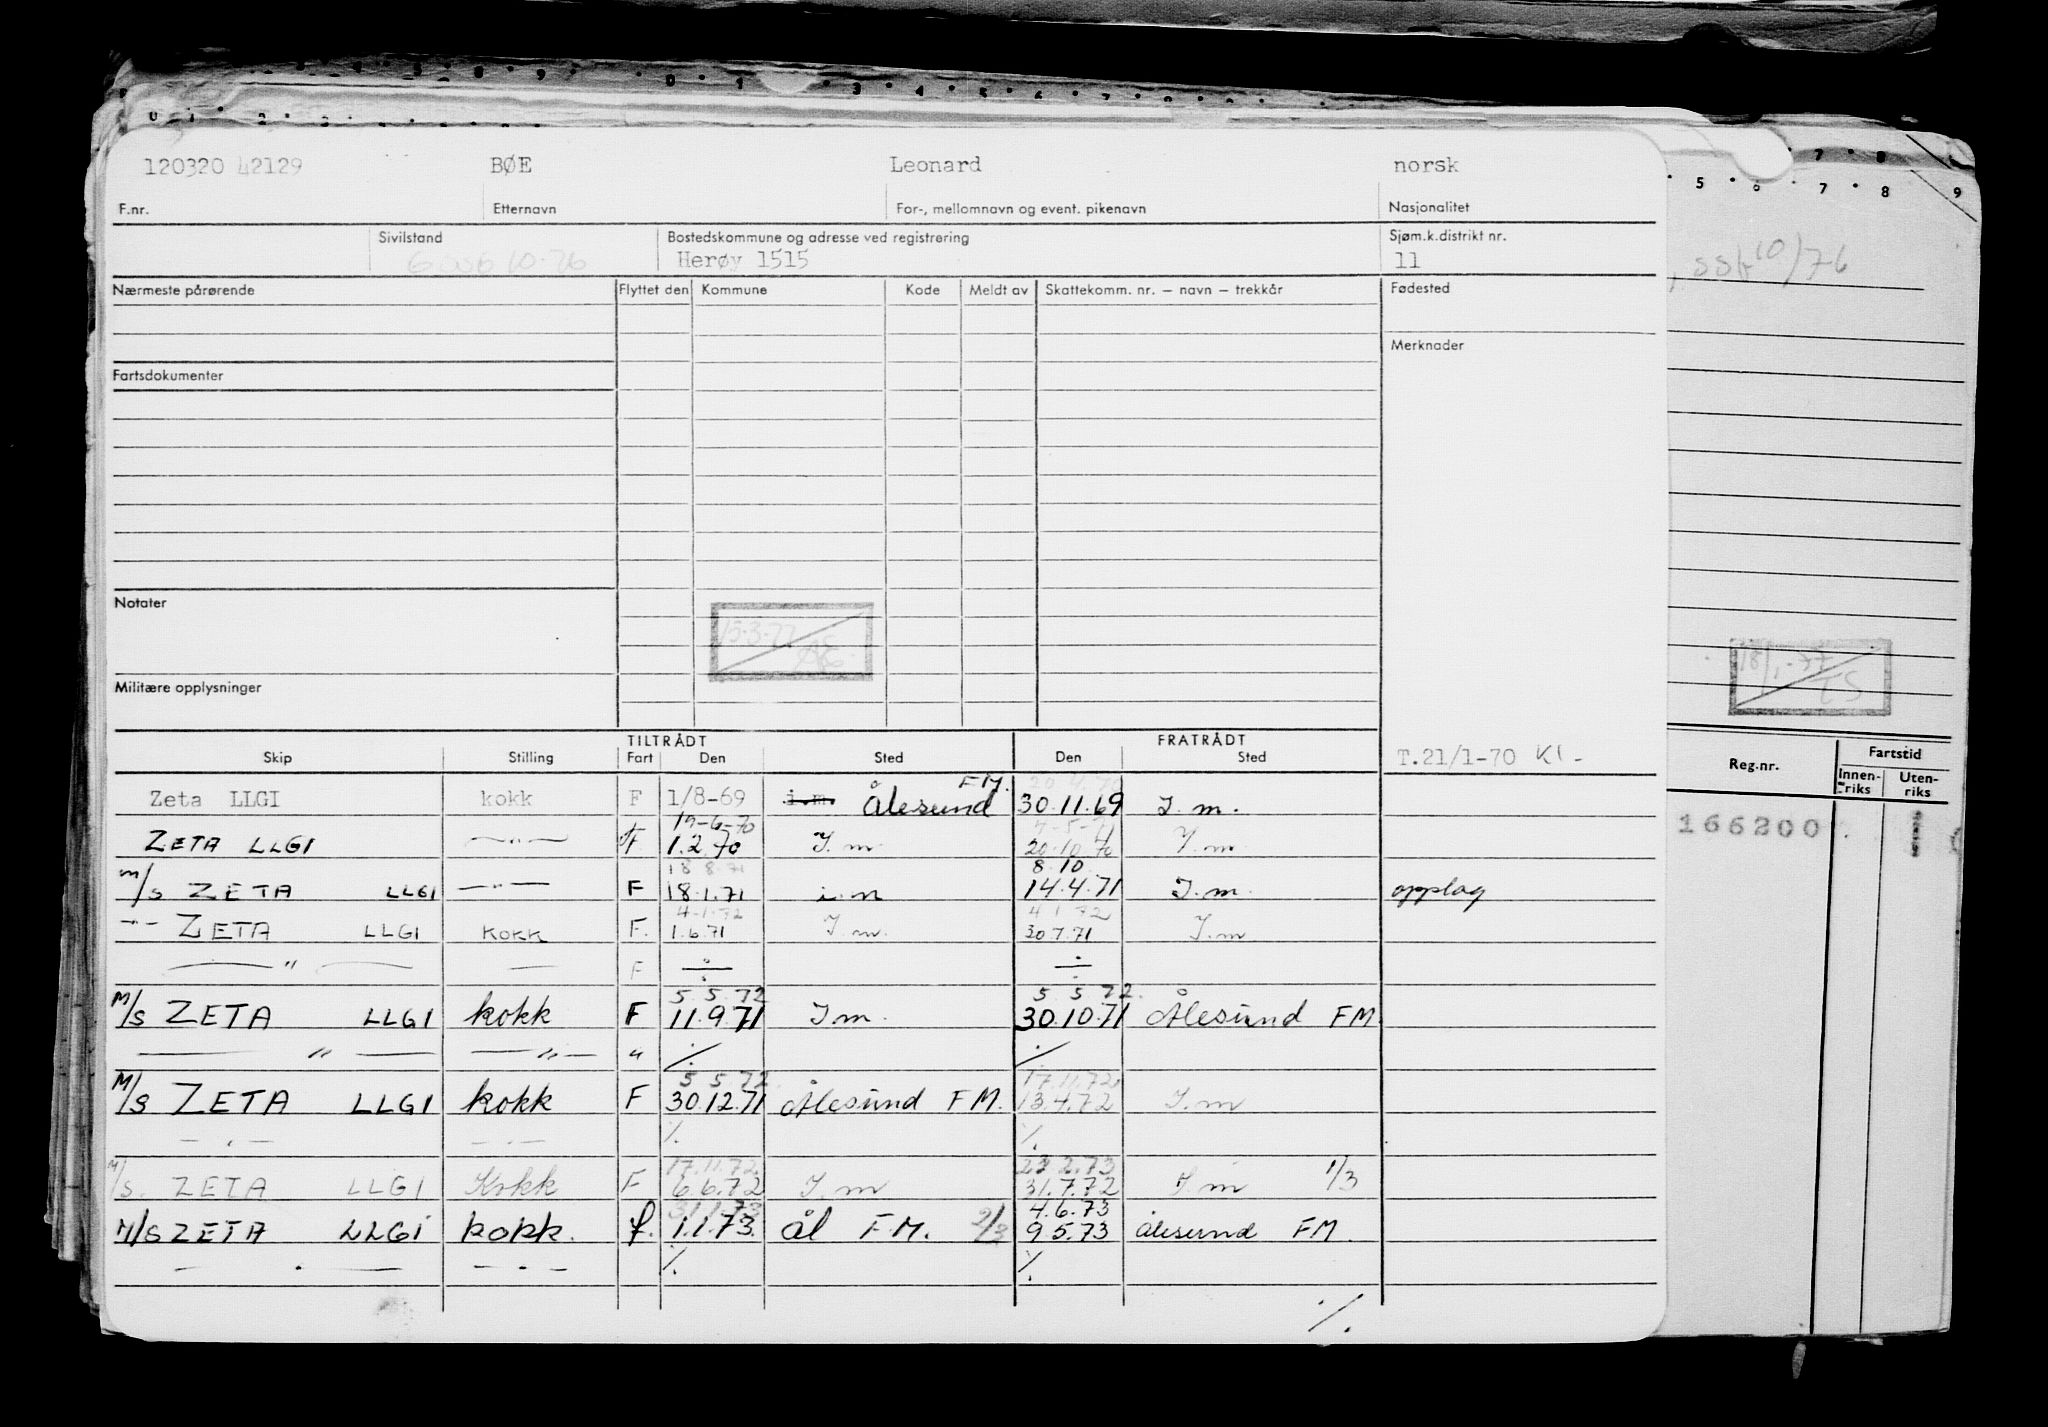 120320 42129 BØE Leonard norsk
F.nr. Etternavn For-, mellomnavn og event. pikenavn Nasjonalitet
Sivilstand Bostedskommune og adresse ved registrering Sjøm.k.distrikt nr.
Herøy 1515 11
Nærmeste pårørende Flyttet den Kommune Kode Meldt av Skattekomm. nr. – navn – trekkår Fødested
Merknader
Fartsdokumenter
Notater
15-3-77
Militære opplysninger
18/1-77
TS
TILTRÅDT FRATRÅDT
Skip Stilling Fart Den Sted Den Sted T.21/1-70 Kl -
Reg.nr. Fartstid
Innen-riks Uten-riks
FM. 20.4.70
Zeta LLGI kokk F 1/8-69 i.m. Ålesund 30.11.69 I.m.
19-6-70
ZETA LLGI —"— F 1.2.70 I.m. 20.10.70 I.m.
166200
18 8.71 8.10
m/s ZETA LLGI —"— F 18.1.71 i.m 14.4.71 I.m. opplag
4-1-72 4 1 72
-"- ZETA LLGI KOKK F. 1.6.71 I.m. 30.7.71 I.m
— " — — F ÷ ÷
5. 5. 72 5 5 72.
M/S ZETA LLGI kokk F 11.9.71 I m. 30.10.71 Ålesund FM.
— " — — " — " ./. ./.
5 5. 72. 17.11.72
M/S ZETA LLGI kokk F 30.12.71 Ålesund FM. 13.4.72 I.m
— " — — " — ./. ./.
17.11.72 22 2.73
M/S. ZETA LLGI Kokk F 6.6.72 I.m 31.7.72 I.m 1/3
31.1.73 4.6.73
M/S ZETA LLGI kokk. f. 1.1.73. Ål FM. 2/3 9.5.73 Ålesund FM.
— " — — " — ./. ./.
./.